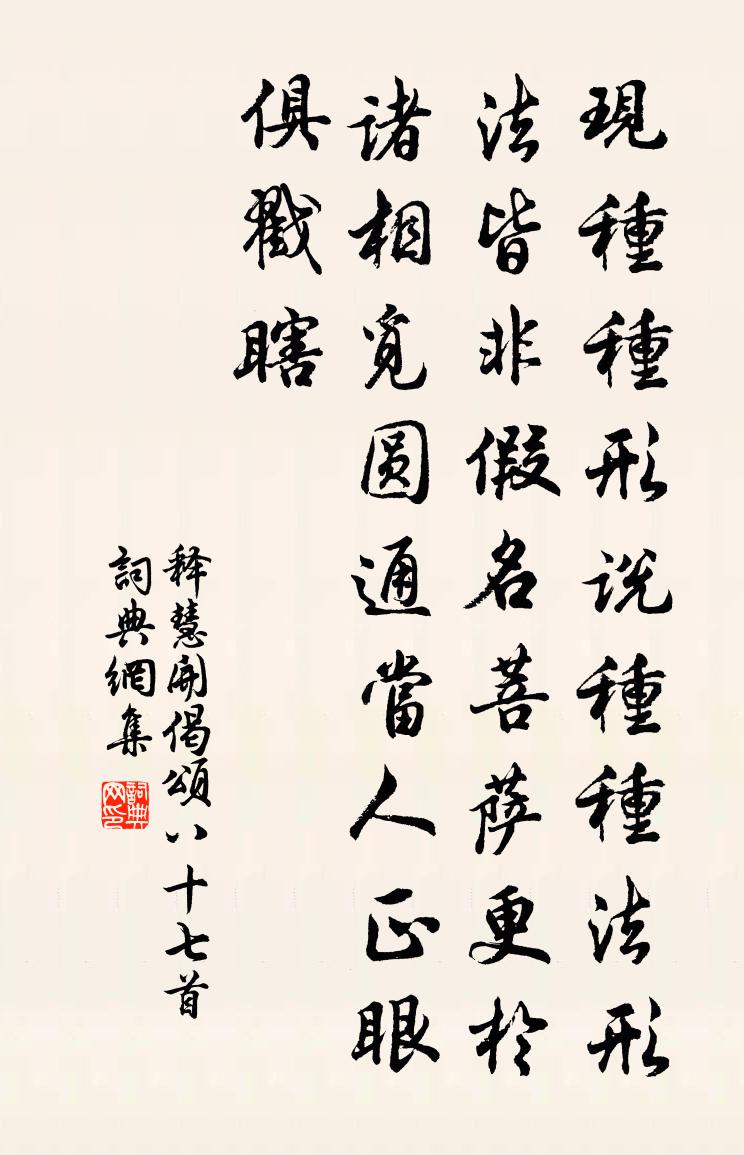 現種種形说種種法形
法皆非假名菩薩更於
诸相覓圆通當人正眼
俱戳瞎
释慧開偈頌八十七首
詞典網集
詞典网印